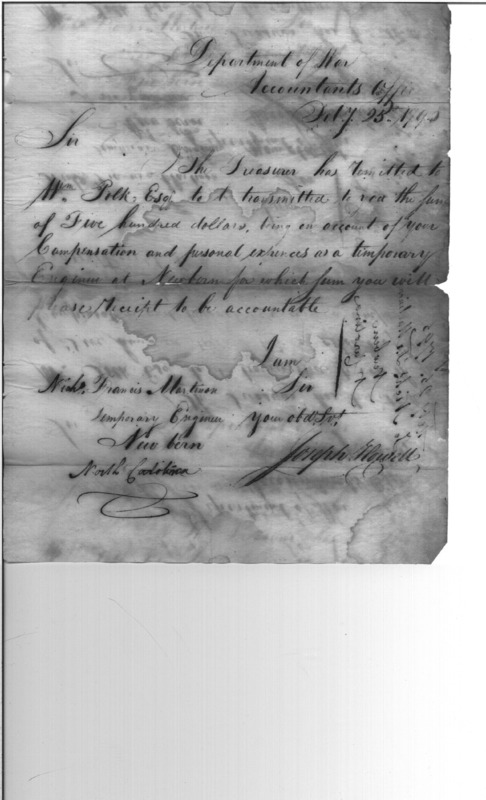 Department of War
Accountants Office
Sir
The Treasurer has remitted to
Wm. Polk, Esqr to be transmitted to you the sum
of Five hundred dollars, being on account of your
Compensation and personal expences as a temporary
Engineer at Newbern for which sum you will
please receipt to be accountable
I am
Nichs. Francis Martinon Sir
temporary Engineer your obdt. Svt.
Newbern Joseph Howell
North Carolina